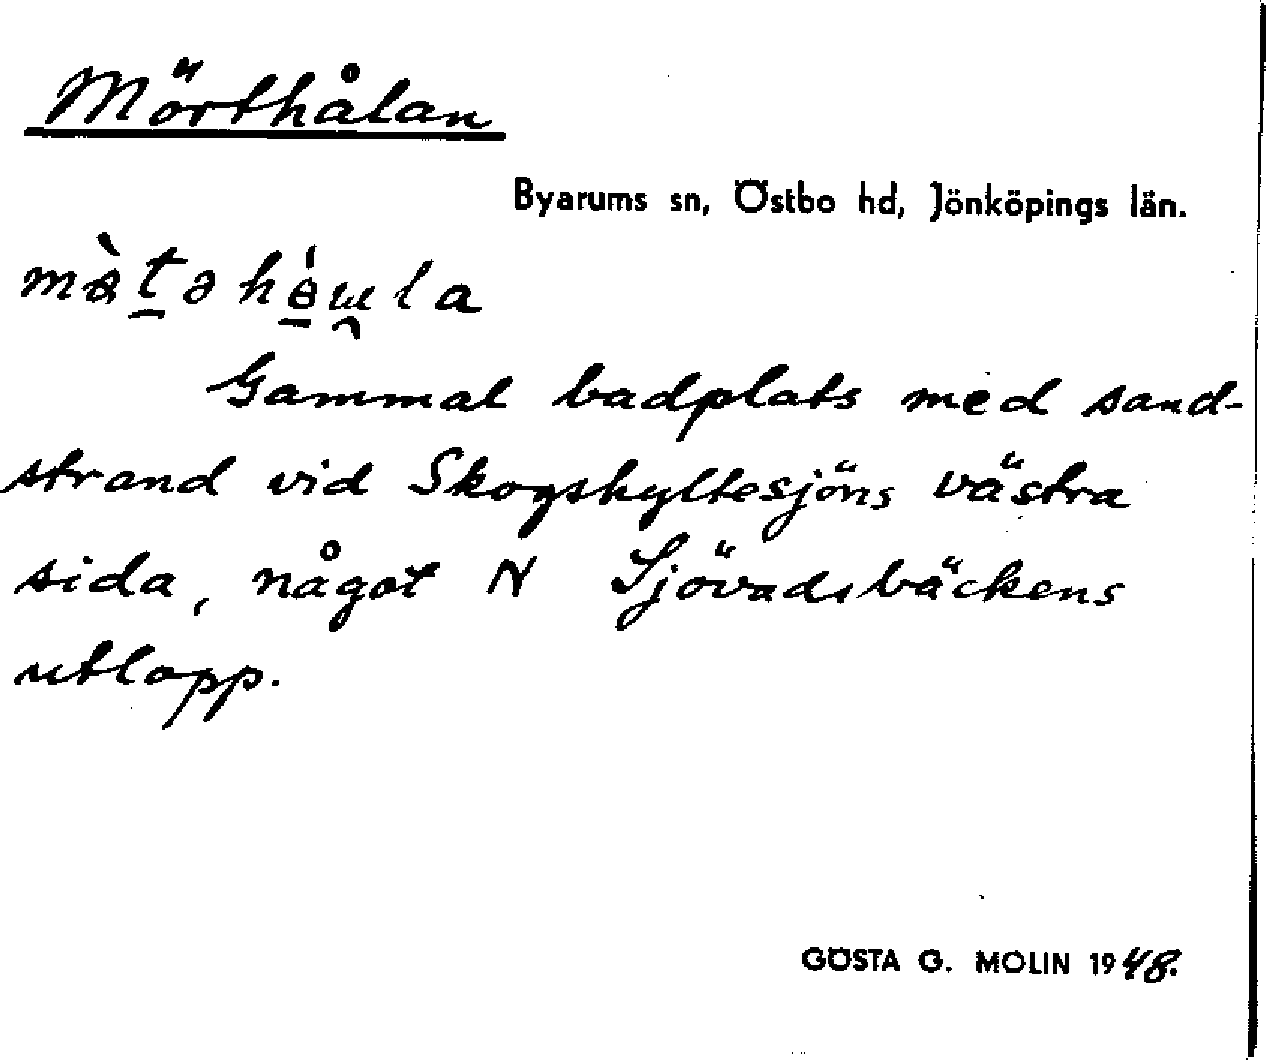 Mörthålan
Byarums sn, Östbo hd, Jönköpings län.
Gammal badplats med sand-
strand vid Skogshyltesjöns västra
sida, något N Sjövadsbäckens
utlopp.
GÖSTA G. MOLIN 1948.